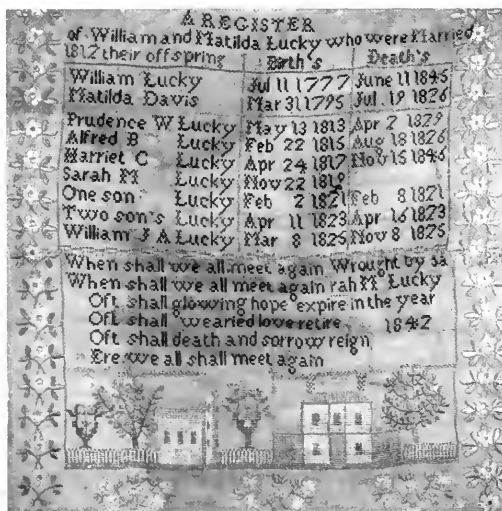 A REGISTER
of William and Matilda Lucky who were Married
1812 their offspring Birth's Death's
William Lucky Jul 11 1777 June 11 1845
Matilda Davis Mar 31 1795 Jul. 19 1826
Prudence W Lucky May 13 1813 Apr 2 1829
Alfred B Feb 22 1815 Aug 18 1826
Harriet C Lucky Apr 24 1817 Nov 15 1846
Sarah M Nov 22 1819
One son Lucky Feb 2 1821 Feb 8 1821
Two son's Lucky Apr 11 1823 Apr 16 1823
William J A Lucky Mar 8 1825 Nov 8 1825
When shall we all meet again Wrought by sa
When shall we all meet again rah M Lucky
Oft shall glowing hope expire in the year
Oft shall wearied love retire 1842
Oft shall death and sorrow reign
Ere we all shall meet again